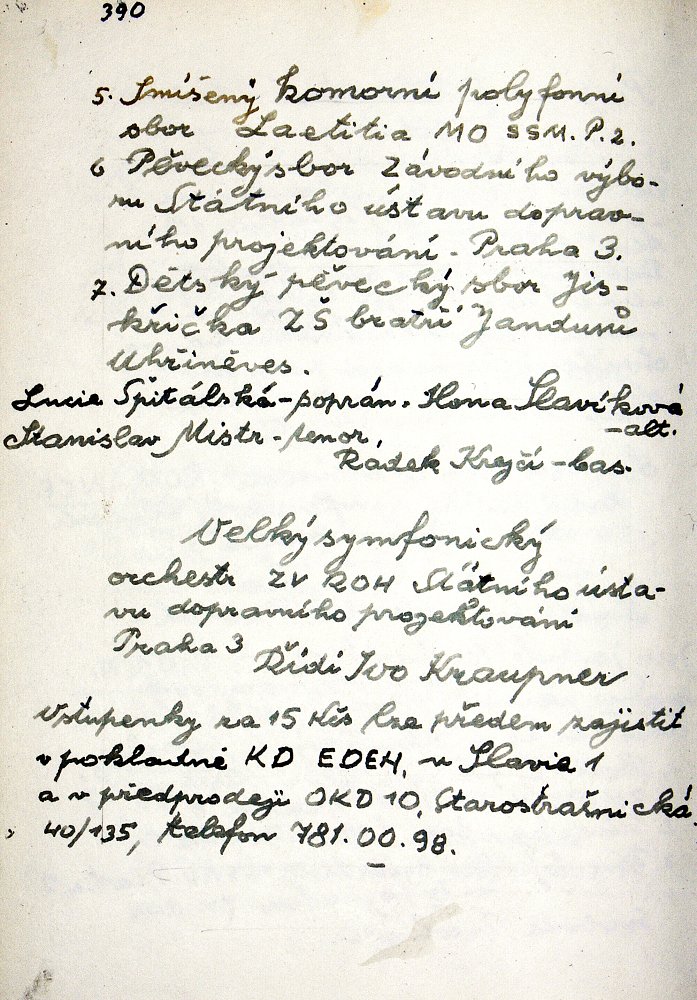 390
5. Smíšený komorní polyfonní
sbor Laetitia MO SSM. P. 2.
6 Pěvecký sbor Závodního výbo-
ru Státního ústavu doprav-
ního projektování - Praha 3.
7. Dětský pěvecký sbor Jis-
křička ZŠ bratří Jandusů
Uhříněves.
Lucie Špitálská - soprán. Ilona Slavíková
- alt.
Stanislav Mistr - tenor,
Radek Krejčí - bas.
Velký symfonický
orchestr ZV ROH Státního ústa-
vu dopravního projektování
Praha 3
Řídí Ivo Kraupner
Vstupenky za 15 Kčs lze předem zajistit
v pokladně KD EDEN, u Slavie 1
a v předprodeji OKD 10, Starostrašnická
40/135, telefon 781.00.98.